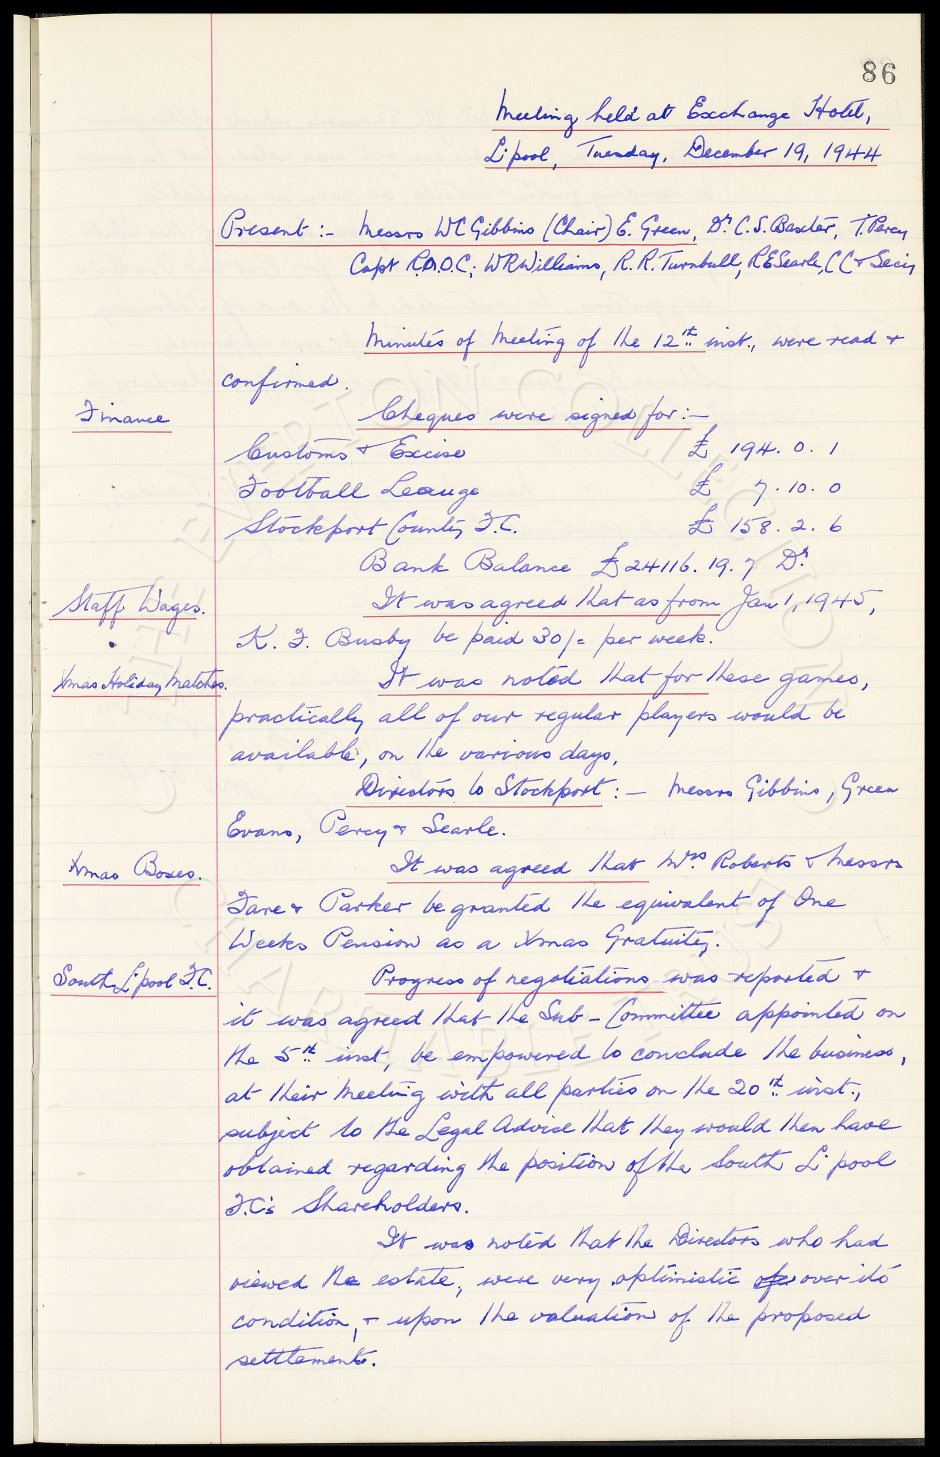 86
Meeting held at Exchange Hotel,
L'pool, Tuesday, December 19, 1944
Present :- Messrs WC Gibbins (Chair) E. Green, Dr C. S. Baxter, T. Percy
Capt R.D.O.C; WR Williams, R. R. Turnbull, R E Searle, CC & Secy
Minutes of Meeting of the 12th inst., were read &
confirmed.
Finance
Cheques were signed for :-
Customs & Excise £ 194. 0. 1
Football League £ 7. 10. 0
Stockport County F.C. £ 158. 2. 6
Bank Balance £24116. 19. 7 Dr
Staff Wages.
It was agreed that as from Jan 1, 1945,
K. F. Busby be paid 30/= per week.
Xmas Holiday Matches.
It was noted that for these games,
practically all of our regular players would be
available, on the various days.
Directors to Stockport :- Messrs Gibbins, Green
Evans, Percy & Searle.
Xmas Boxes.
It was agreed that Mrs Roberts & Messrs
Fare & Parker be granted the equivalent of One
Weeks Pension as a Xmas Gratuity.
South L'pool F.C.
Progress of negotiations was reported &
it was agreed that the Sub-Committee appointed on
the 5th inst, be empowered to conclude the business,
at their meeting with all parties on the 20th inst.,
subject to the Legal Advice that they would then have
obtained regarding the position of the South L'pool
F.C's Shareholders.
It was noted that the Directors who had
viewed the estate, were very optimistic over its
condition, & upon the valuation of the proposed
settlement.
THE EVERTON COLLECTION
CHARITABLE TRUST